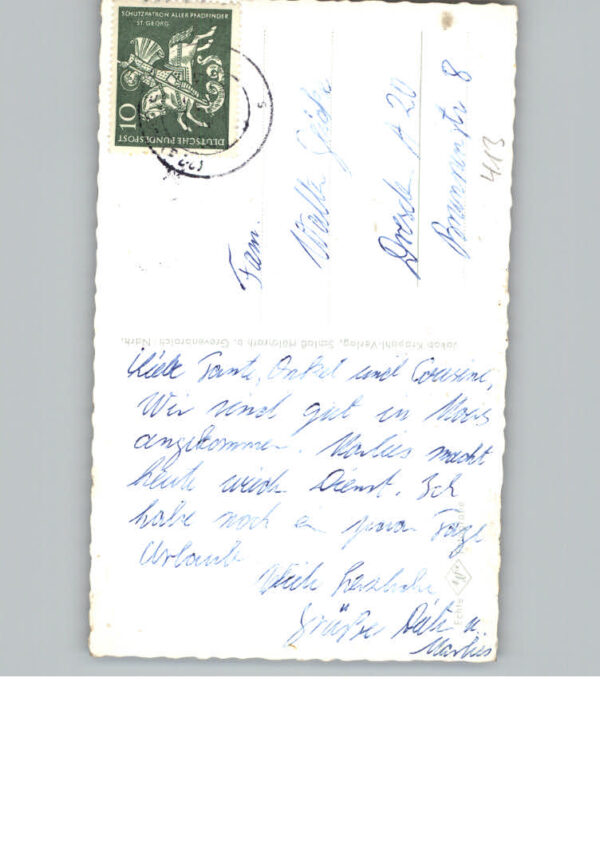 SCHUTZPATRON ALLER PFADFINDER
ST. GEORG
10
DEUTSCHE BUNDESPOST
Fam.
Walter
Dresden A 20
8
413
Jakob Krapohl-Verlag, Schloß Hülchrath b. Grevenbroich / Ndrh.
Liebe Tante, Onkel und Cousine,
Wir sind gut in Moers
angekommen. Marlies macht
heute wieder Dienst. Ich
habe noch ein paar Tage
Urlaub
Viele herzliche
Grüße u.
Marlies
Echte